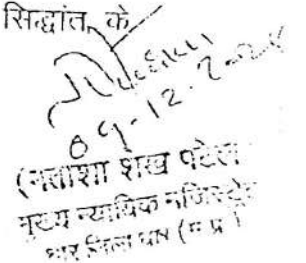 सिद्धांत के
09-12-2024
(नताशा शेख पटेल
मुख्य न्यायिक मजिस्ट्रेट
धार जिला धार (म.प्र.)